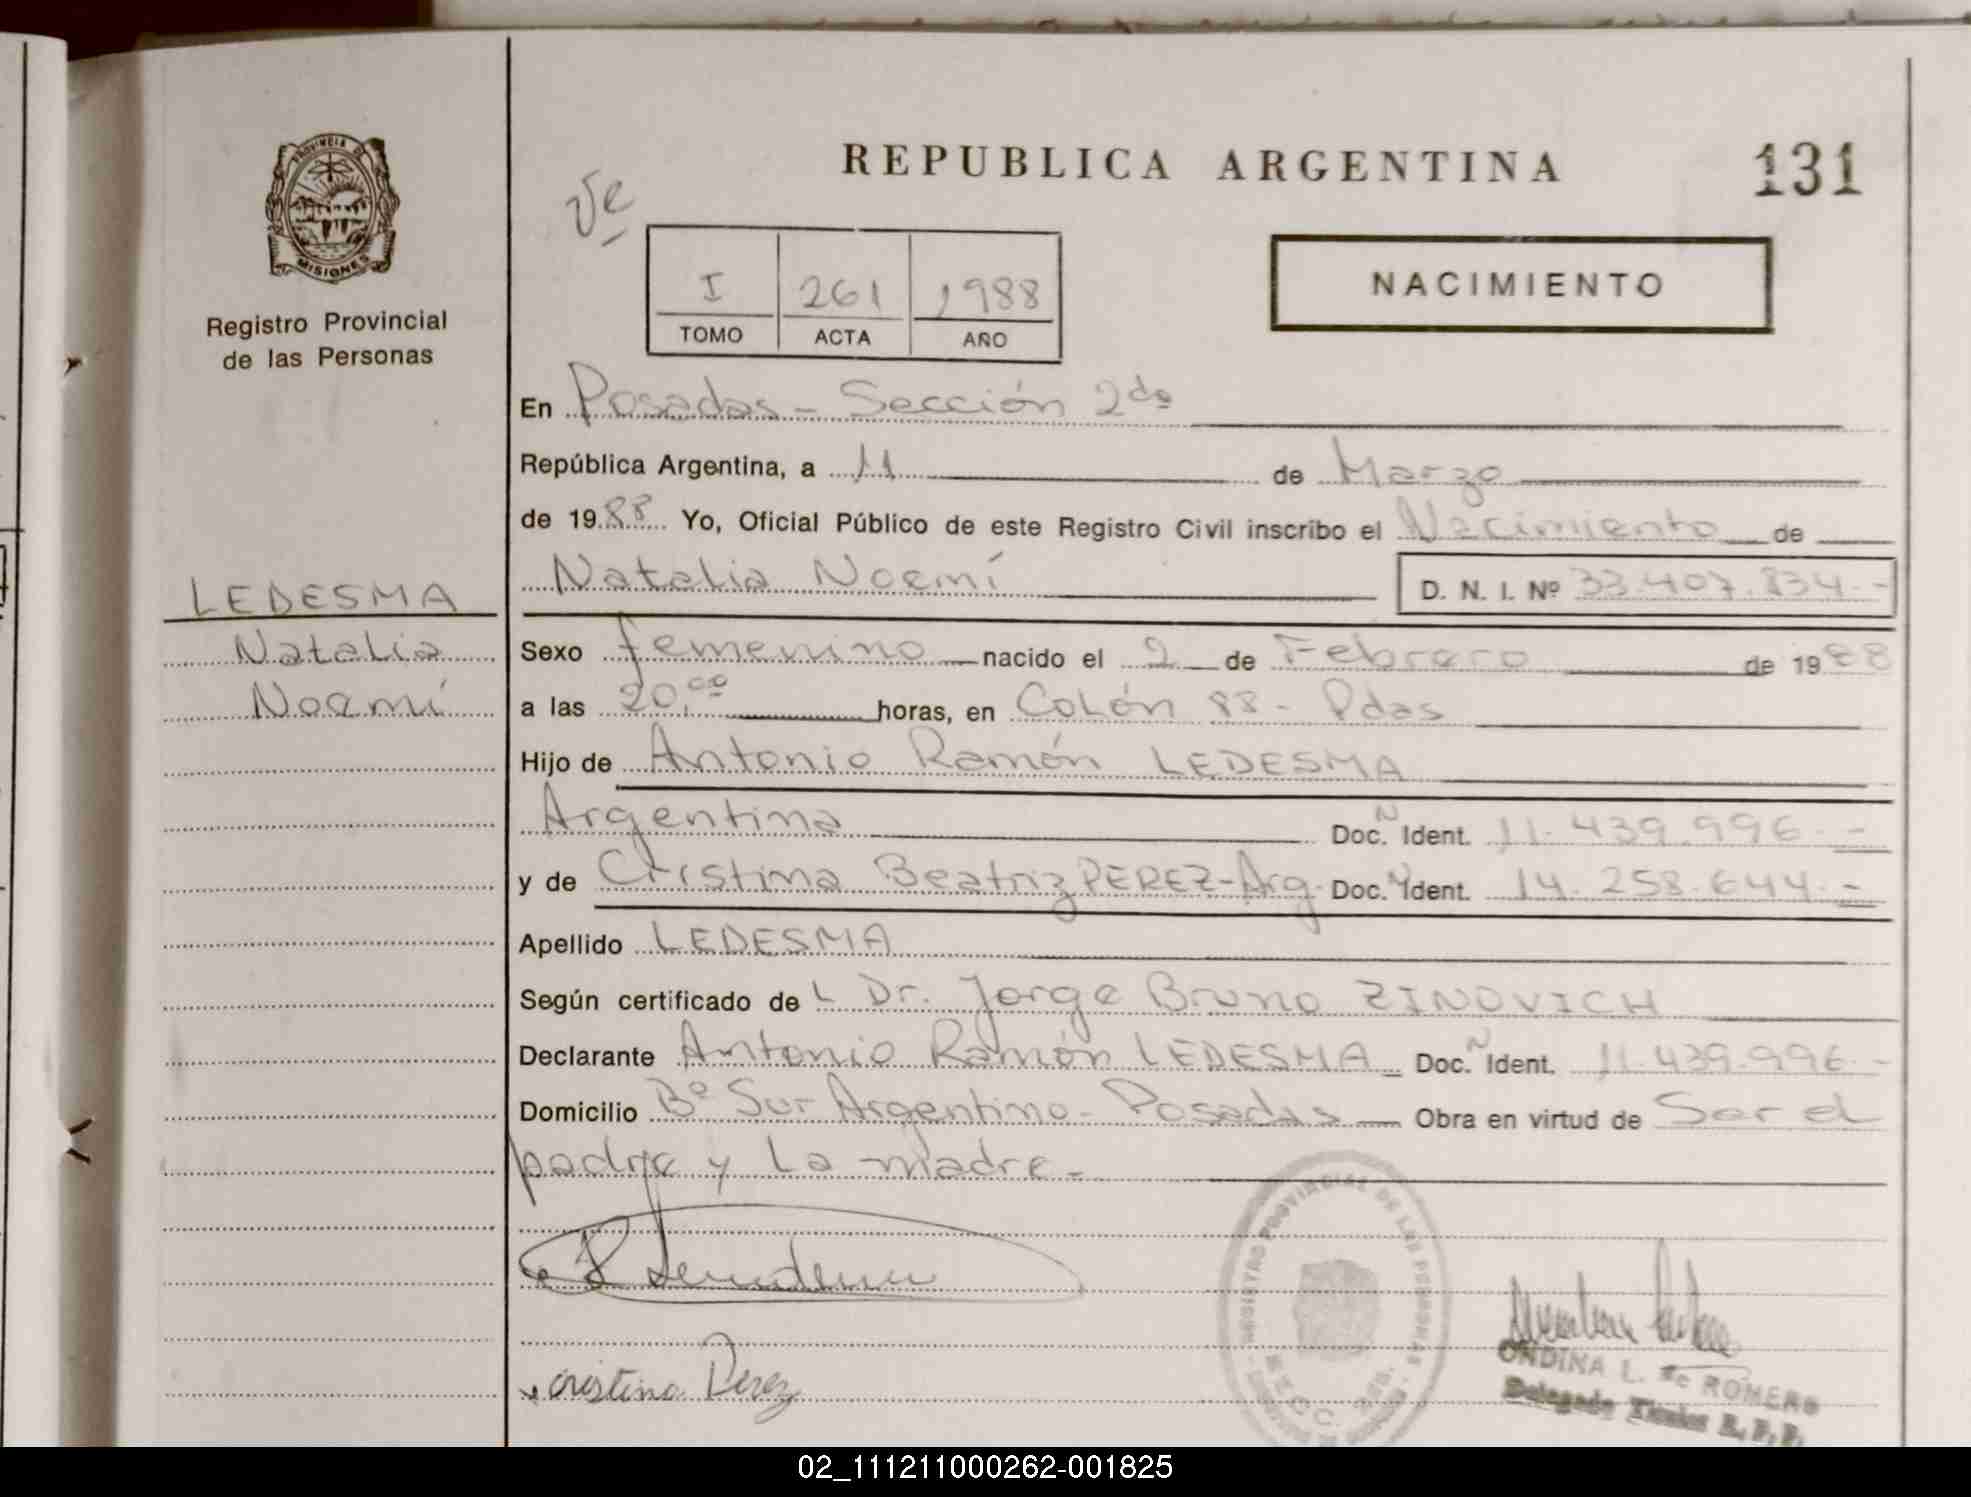 REPUBLICA ARGENTINA
131
PROVINCIA DE
MISIONES
Registro Provincial
de las Personas
NACIMIENTO
I 261 1988
TOMO ACTA AÑO
En Posadas - Sección 2da
República Argentina, a 11 de Marzo
de 1988 Yo, Oficial Público de este Registro Civil inscribo el Nacimiento de
Natalia Noemí D. N. I. Nº 33.407.834.-
LEDESMA
Natalia
Noemí
Sexo femenino nacido el 2 de Febrero de 1988
a las 20,00 horas, en Colón 88 - Pdas
Hijo de Antonio Ramón LEDESMA
Argentina Doc. Ident. 11.439.996.-
y de Cristina Beatriz PEREZ-Arg. Doc. Ident. 14.258.644.-
Apellido LEDESMA
Según certificado de L Dr. Jorge Bruno ZINOVICH
Declarante Antonio Ramón LEDESMA Doc. Ident. 11.439.996.-
Domicilio Bº Sur Argentino - Posadas Obra en virtud de Ser el
padre y La madre -
REGISTRO PROVINCIAL DE LAS PERSONAS
cristina Perez
ONDINA L. de ROMERO
Delegado Titular R. P. P.
02_111211000262-001825